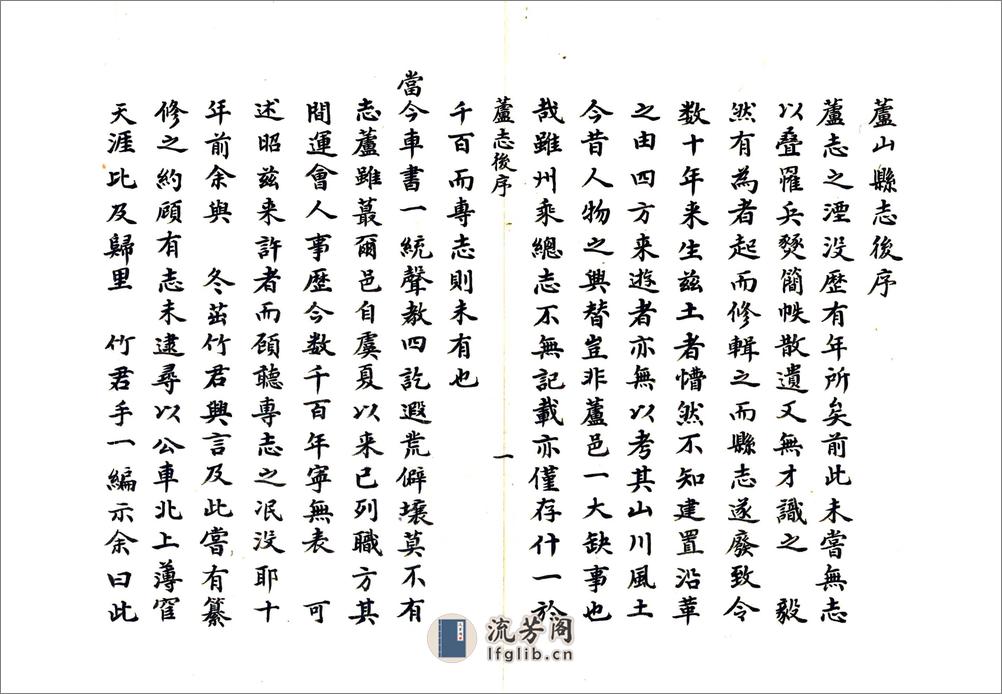 蘆山縣志後序
蘆志之湮没歷有年所矣前此未嘗無志
以疊罹兵燹簡帙散遺又無才識之 毅
然有為者起而修輯之而縣志遂廢致令
数十年来生兹土者懵然不知建置沿革
之由四方来遊者亦無以考其山川風土
今昔人物之興替豈非蘆邑一大缺事也
哉雖州乘總志不無記載亦僅存什一於
蘆志後序 一
千百而專志則未有也
當今車書一統聲教四訖遐荒僻壤莫不有
志蘆雖蕞爾邑自虞夏以来已列職方其
間運會人事歷今数千百年寧無表 可
述昭兹来許者而頋聽專志之泯没耶十
年前余與 冬茁竹君興言及此嘗有纂
修之約顧有志未逮尋以公車北上薄宦
天涯比及歸里 竹君手一編示余曰此
流芳阁
lfglib.cn